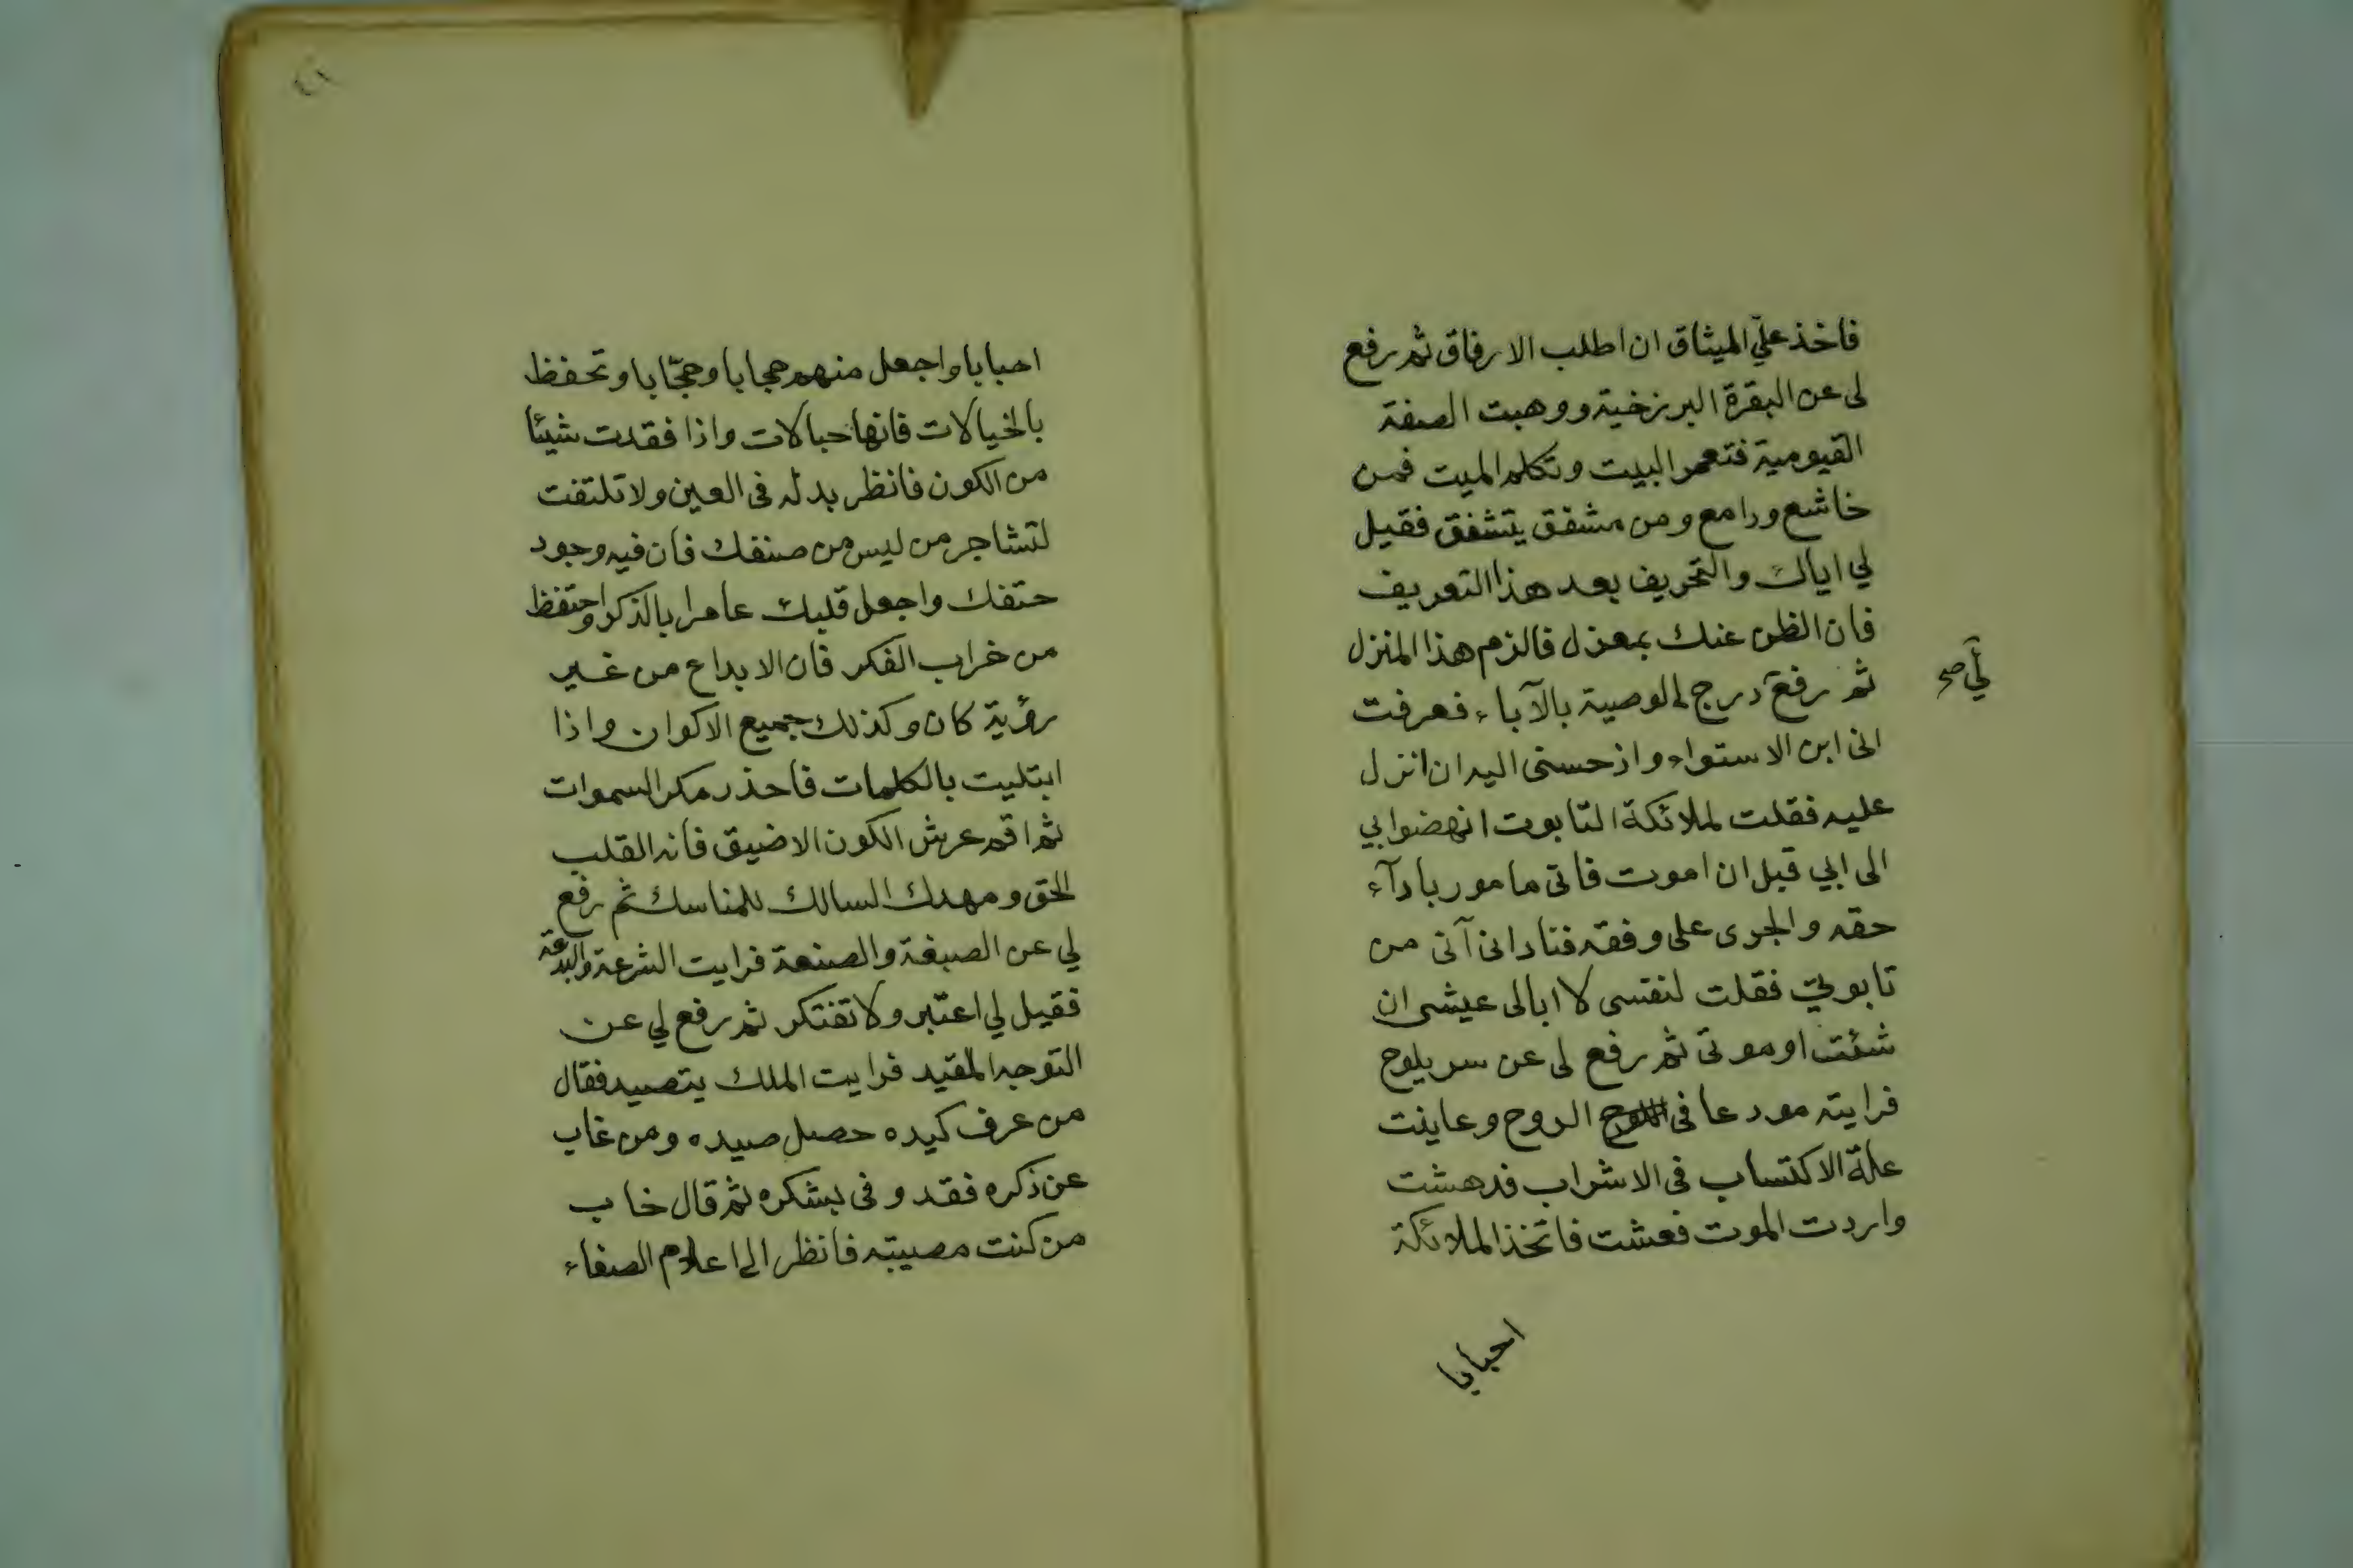 فاخذ عليّ الميثاق ان اطلب الارفاق ثم رفع
لى عن البقرة البرزخية ووهبت الصفة
القيومية فتعمر البيت وتكلم الميت فمن
خاشع ورامع ومن مشفق يتشفق فقيل
لي اياك والتحريف بعد هذا التعريف
فان الظن عنك بمعزل فالزم هذا المنزل
ثم رفع درج الوصية بالآباء فعرفت
لي صح
انى ابن الاستواء واذ حسنى اليه ان انزل
عليه فقلت لملائكة التابوت انهضوا بي
الى ابي قبل ان اموت فاتى مامور بادآء
حقه والجرى على وفقه فنادانى آتى من
تابوتي فقلت لنفسى لا ابالى عيشى ان
شئت او موتى ثم رفع لى عن سر يلوح
فرايته مودعا فى الروح وعاينت
علة الاكتساب فى الاشراب فدهشت
واردت الموت فعشت فاتخذ الملائكة
احبابا
٤١
احبابا واجعل منهم حجابا وحجّابا وتحفظ
بالخيالات فانها حبالات واذا فقدت شيئا
من الكون فانظر بدله فى العين ولا تلتفت
لتشاجر من ليس من صنفك فان فيه وجود
حتفك واجعل قلبك عامرا بالذكر واحتفظ
من خراب الفكر فان الابداع من غير
رؤية كان وكذلك جميع الاكوان واذا
ابتليت بالكلمات فاحذر مكر السموات
ثم اقم عرش الكون الاضيق فانه القلب
الحق ومهدك السالك للمناسك ثم رفع
لي عن الصبغة والصنعة فرايت الشرعة والبدعة
فقيل لي اعتبر ولا تفتكر ثم رفع لي عن
التوجه المقيد فرايت الملك يتصيد فقال
من عرف كيده حصل صيده ومن غاب
عن ذكره فقد وفى بشكره ثم قال خاب
من كنت مصيبته فانظر الى اعلام الصفاء